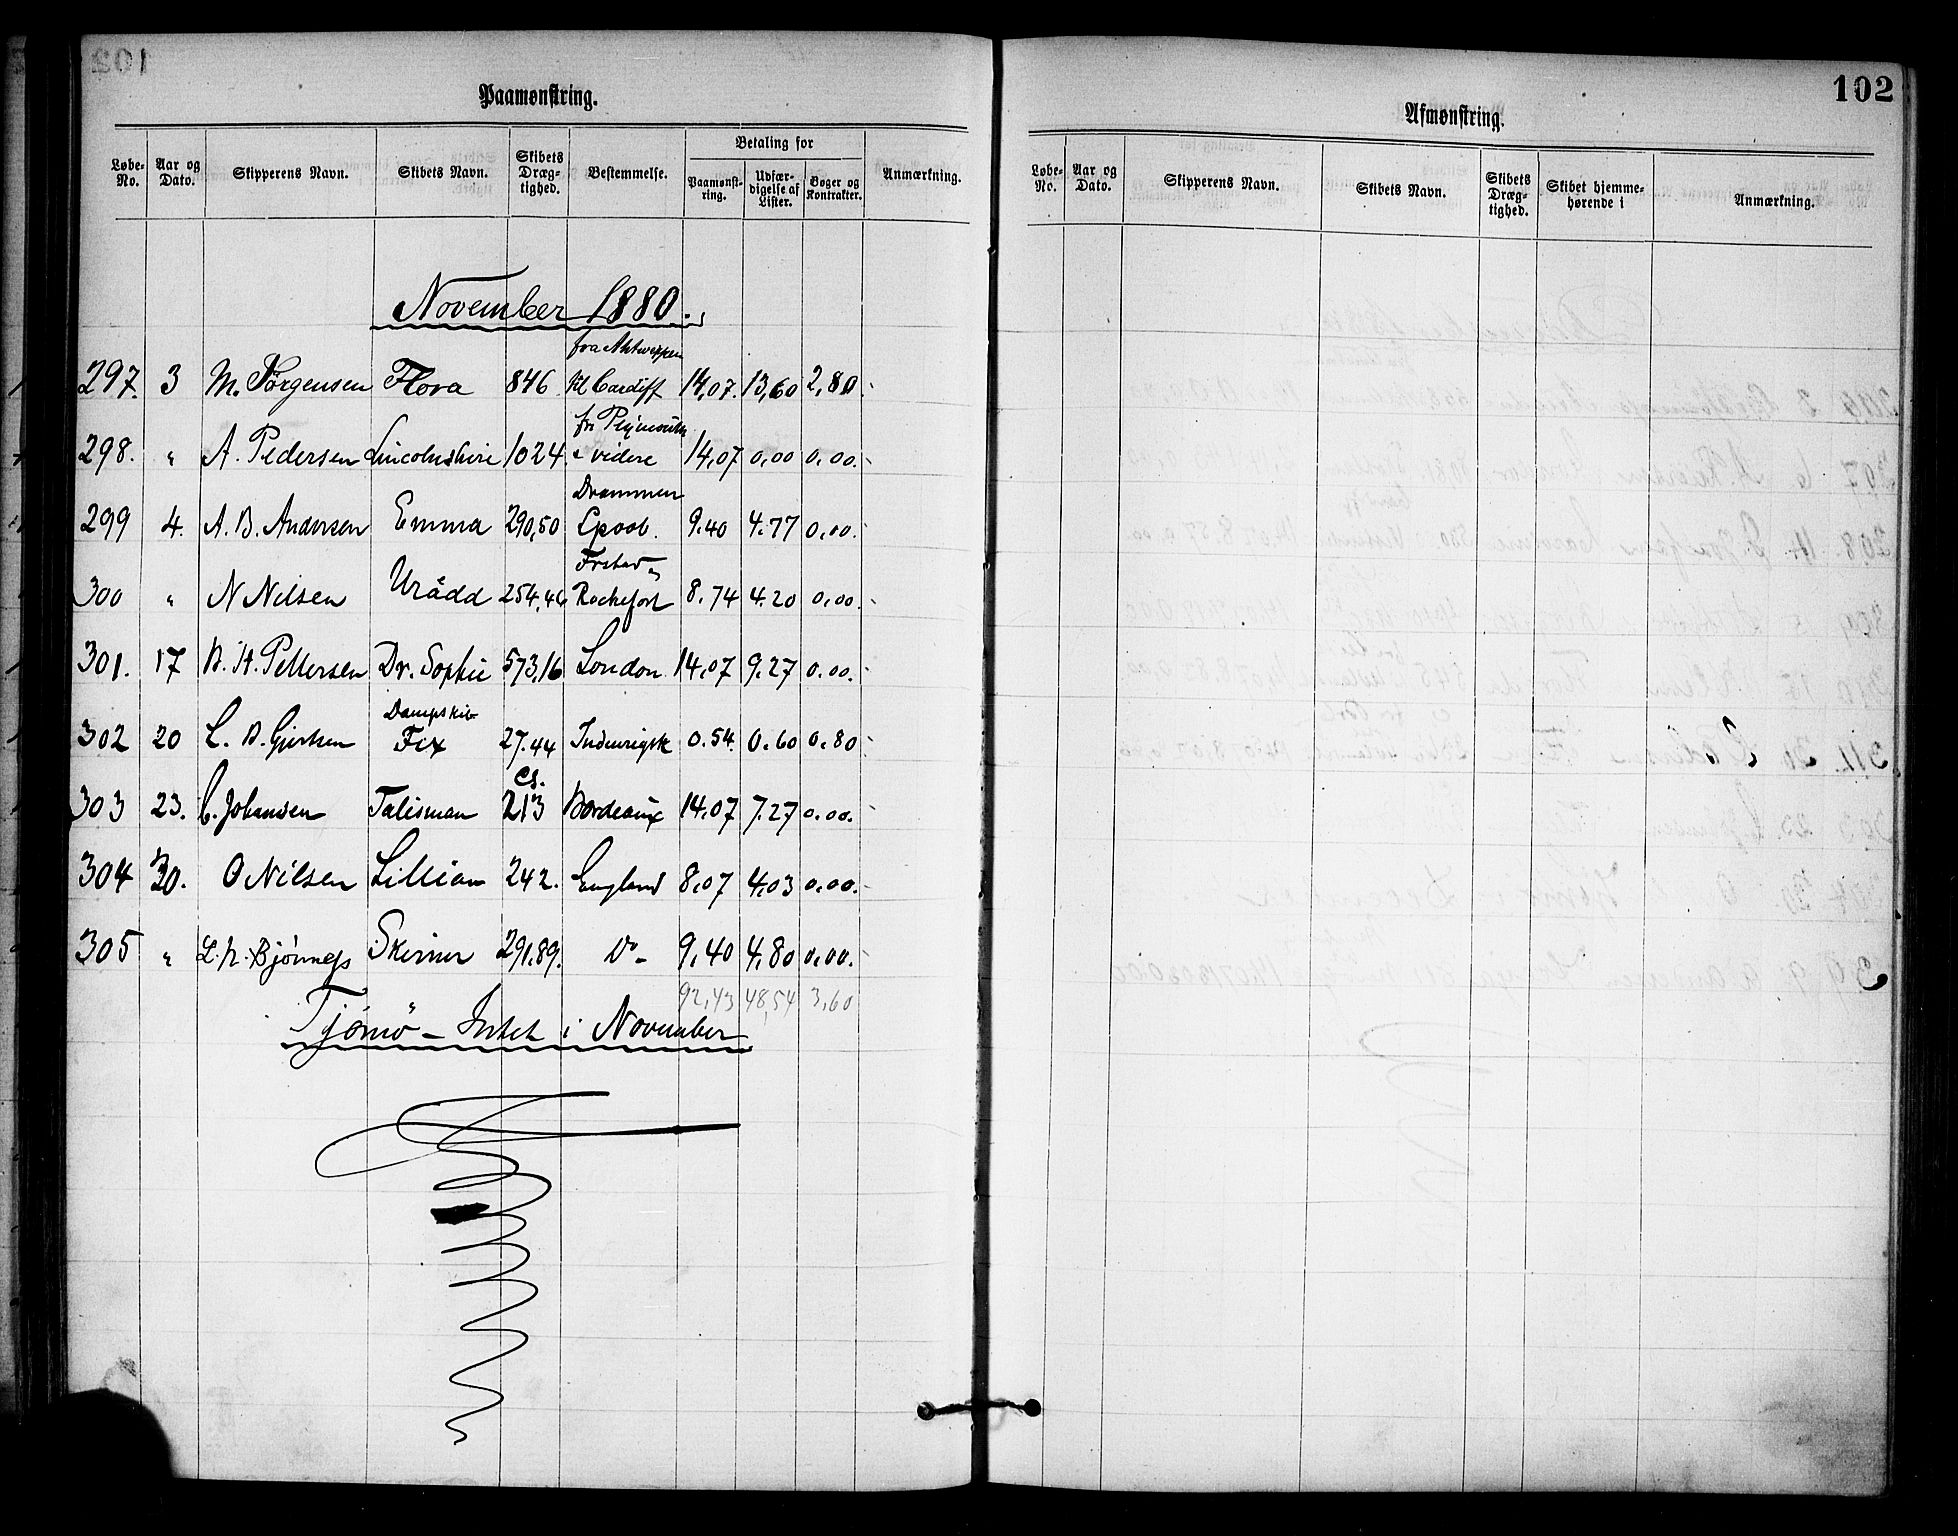 Paamønstring.
Løbe-No. Aar og Dato. Skipperens Navn. Skibets Navn. Skibets Dræg-tighed. Bestemmelse. Betaling for Paamønst-ring. Udfær-digelse af Lister. Bøger og Kontrakter. Anmærkning.
November 1880.
fra Antwerpen
297. 3 M. Jørgensen Flora 846 til Cardiff 14,07. 13,60 2,80.
fri Plymouth
298. " A. Pedersen Lincolnshire 1024. & videre 14,07 0,00 0,00.
Drammen
299 4. A. B. Andersen Emma 290,50 Lpool. 9.40 4.77 0,00.
Frstad
300 " N Nilsen Urådd 254,46 Rochefort 8.74 4.20 0,00.
301. 17 B. H. Pettersen Dr. Sophie 573,16 London 14,07 9.27 0,00.
Dampskib
302 20 L. B. Gjertsen Fix 27.44 Indenrigsk 0.54. 0.60 0,80
Cl.
303 23. C. Johansen Talisman 213 Bordeaux 14,07 7.27 0,00.
304 30. O Nilsen Lillian 242. England 8,07 4,03 0,00.
305 " Skirner 291.89. Do - 9,40 4,80 0,00.
92,43 48,54 3,60
Tjømø - Intet i November
102
Afmønstring.
Løbe-No. Aar og Dato. Skipperens Navn. Skibets Navn. Skibets Dræg-tighed. Skibet hjemme-hørende i Anmærkning.